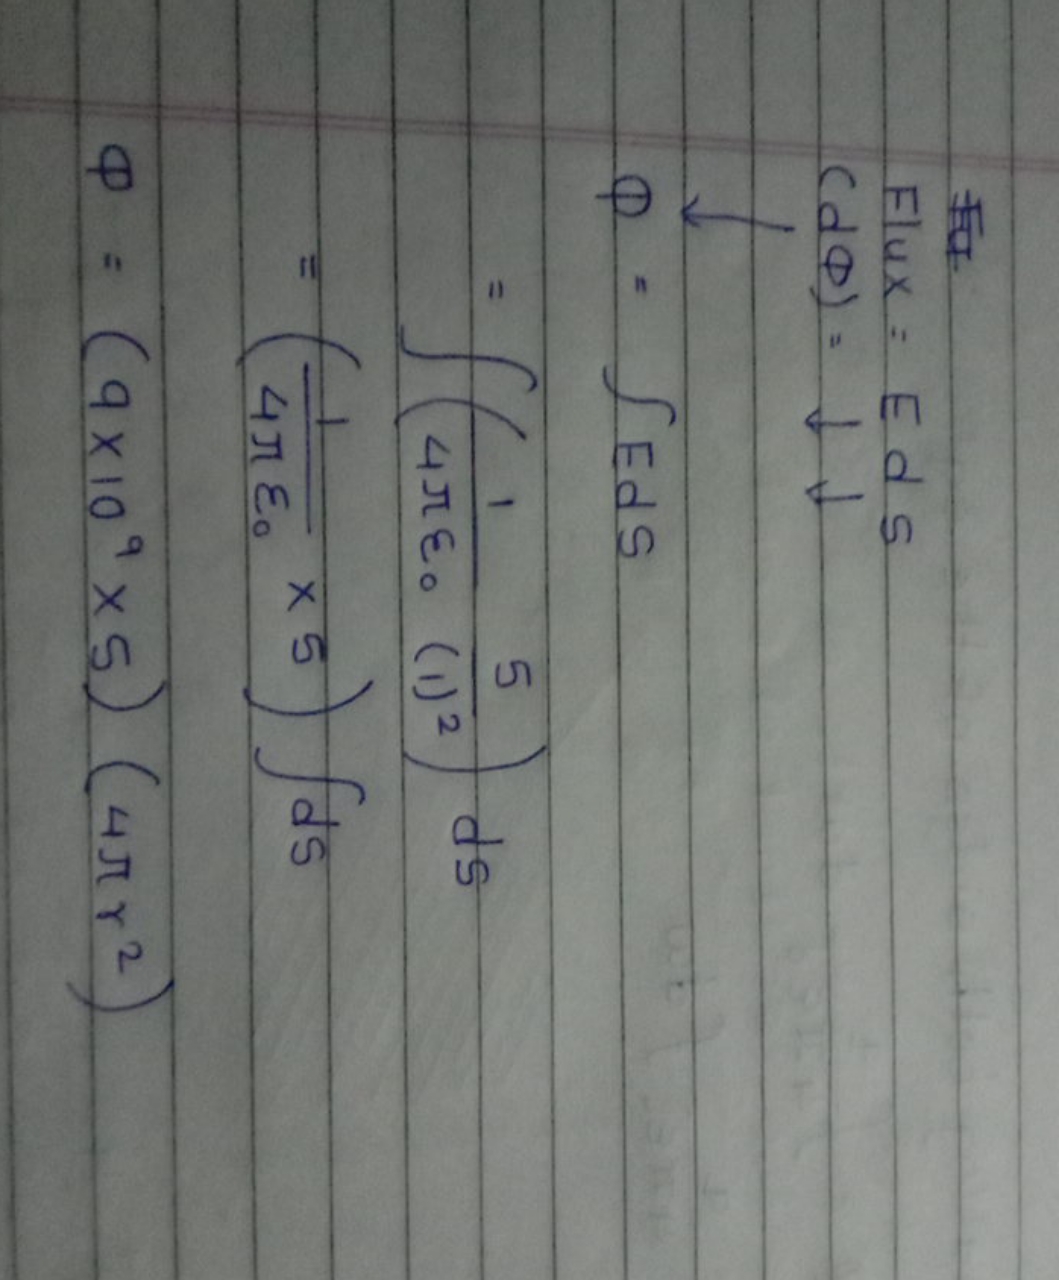 Flux = E ds
(dΦ) = ↓ ↓
↓
Φ = ∫ E ds
= ∫ ( 1 / 4πε₀ 5 / (1)² ) ds
= ( 1 / 4πε₀ × 5 ) ∫ ds
Φ = (9 × 10⁹ × 5) (4πr²)